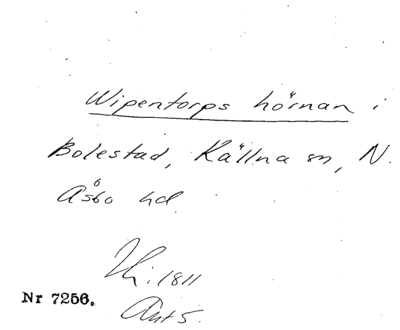 Wipentorps hörnan i
Bolestad, Källna sn, N.
Åsbo hd.
1811
Nr 7256.
Akt 5.